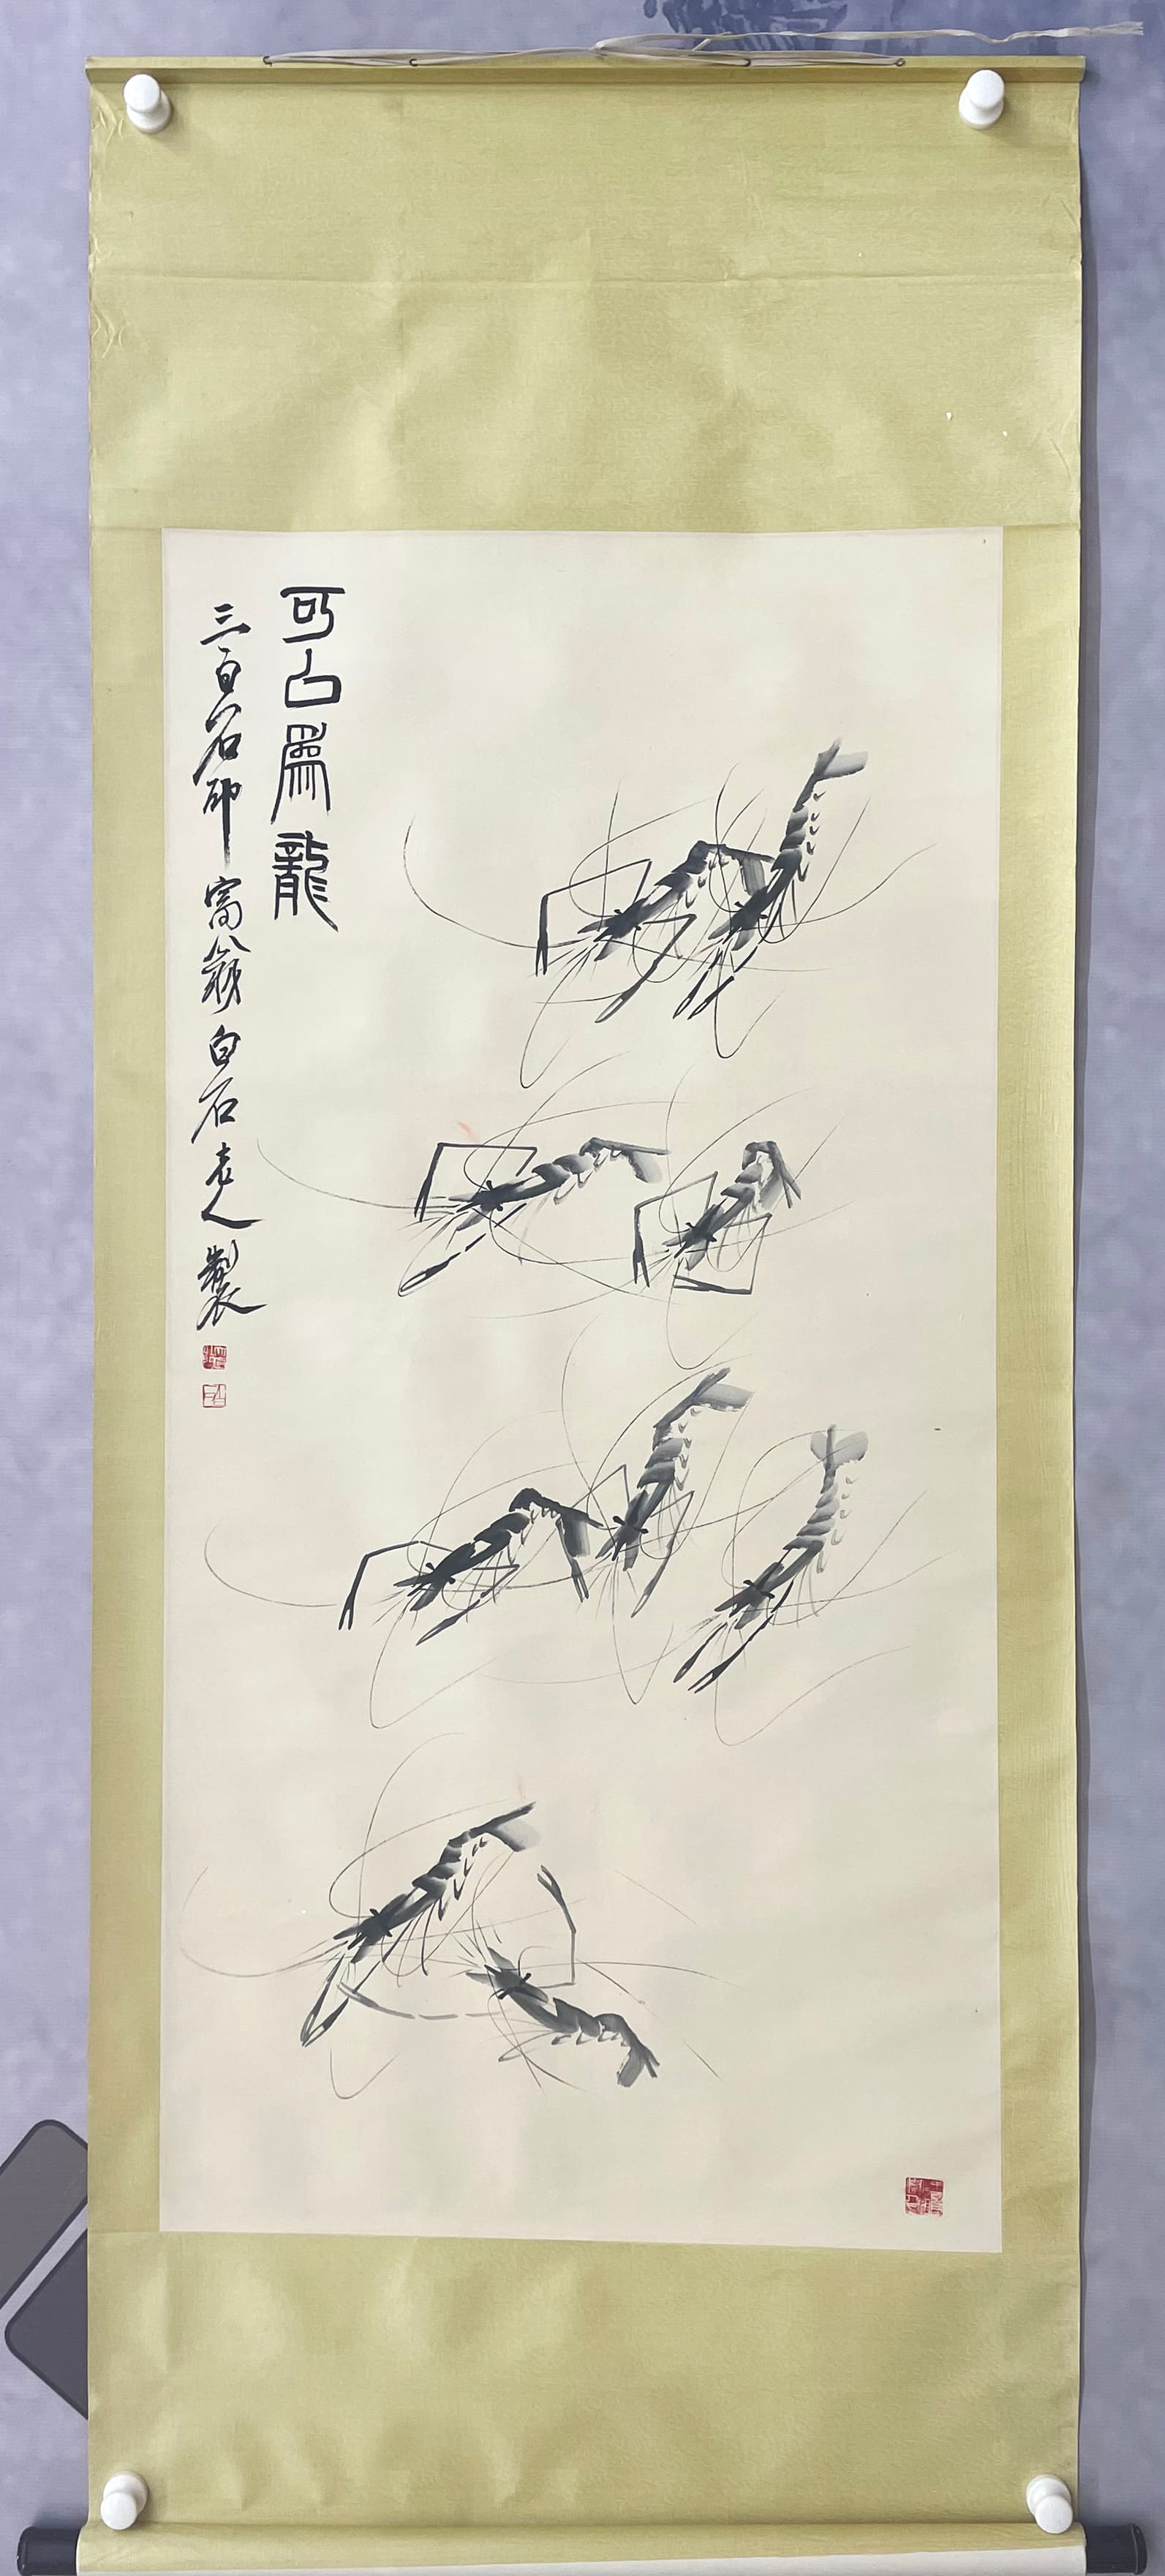 可㠯為龍
三百石印富翁白石老人製